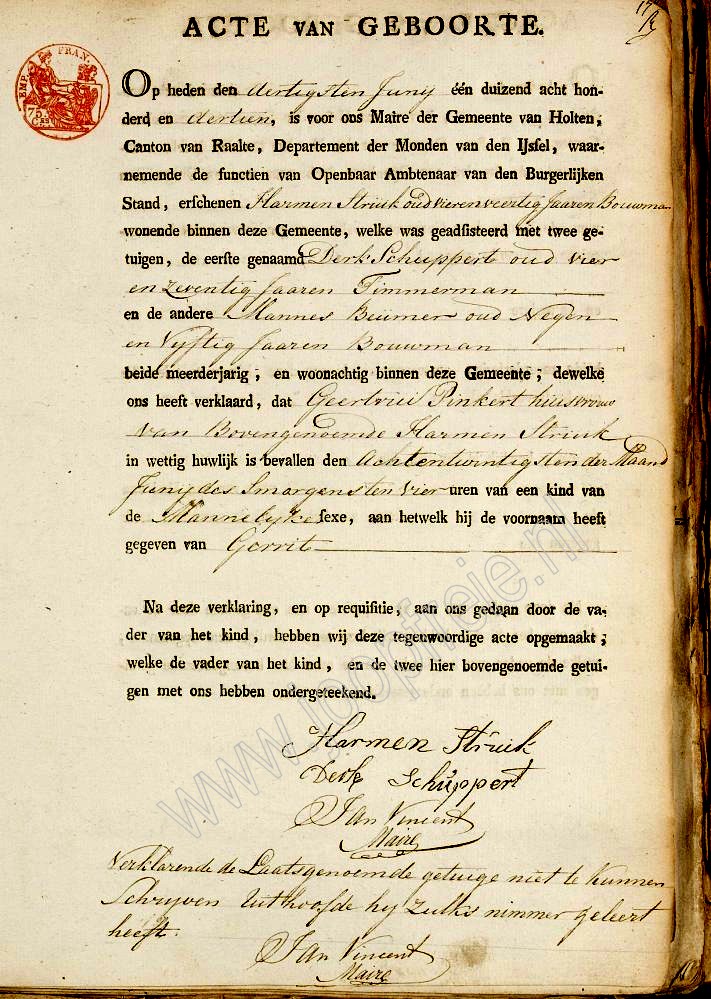 ACTE VAN GEBOORTE.
EMP. FRAN.
75.
Cs
Op heden den dertigsten Junij één duizend acht hon-
derd en dertien, is voor ons Maire der Gemeente van Holten,
Canton van Raalte, Departement der Monden van den IJssel, waar-
nemende de functien van Openbaar Ambtenaar van den Burgerlijken
Stand, erschenen Harmen Struik oud vierenveertig Jaaren Bouwman
wonende binnen deze Gemeente, welke was geadsisteerd met twee ge-
tuigen, de eerste genaamd Derk Schuppert oud vier
en zeventig Jaaren Timmerman
en de andere Mannes Beumer oud Negen
en Vyftig Jaaren Bouwman
beide meerderjarig, en woonachtig binnen deze Gemeente; dewelke
ons heeft verklaard, dat Geertrui Pinkert huisvrouw
van Bovengenoemde Harmen Struik
in wettig huwlijk is bevallen den Achtentwintigsten der Maand
Junij des Smorgens ten vier uren van een kind van
de Mannelyke sexe, aan hetwelk hij de voornaam heeft
gegeven van Gerrit
Na deze verklaring, en op requisitie, aan ons gedaan door de va-
der van het kind, hebben wij deze tegenwoordige acte opgemaakt;
welke de vader van het kind, en de twee hier bovengenoemde getui-
gen met ons hebben ondergeteekend.
Harmen Struik
Derk Schüppert
Jan Vincent
Maire
Verklarende de Laatsgenoemde getuige niet te kunnen
Schryven uithoofde hy zulks nimmer geleert
heeft.
Jan Vincent
Maire
www.joopfreie.nl